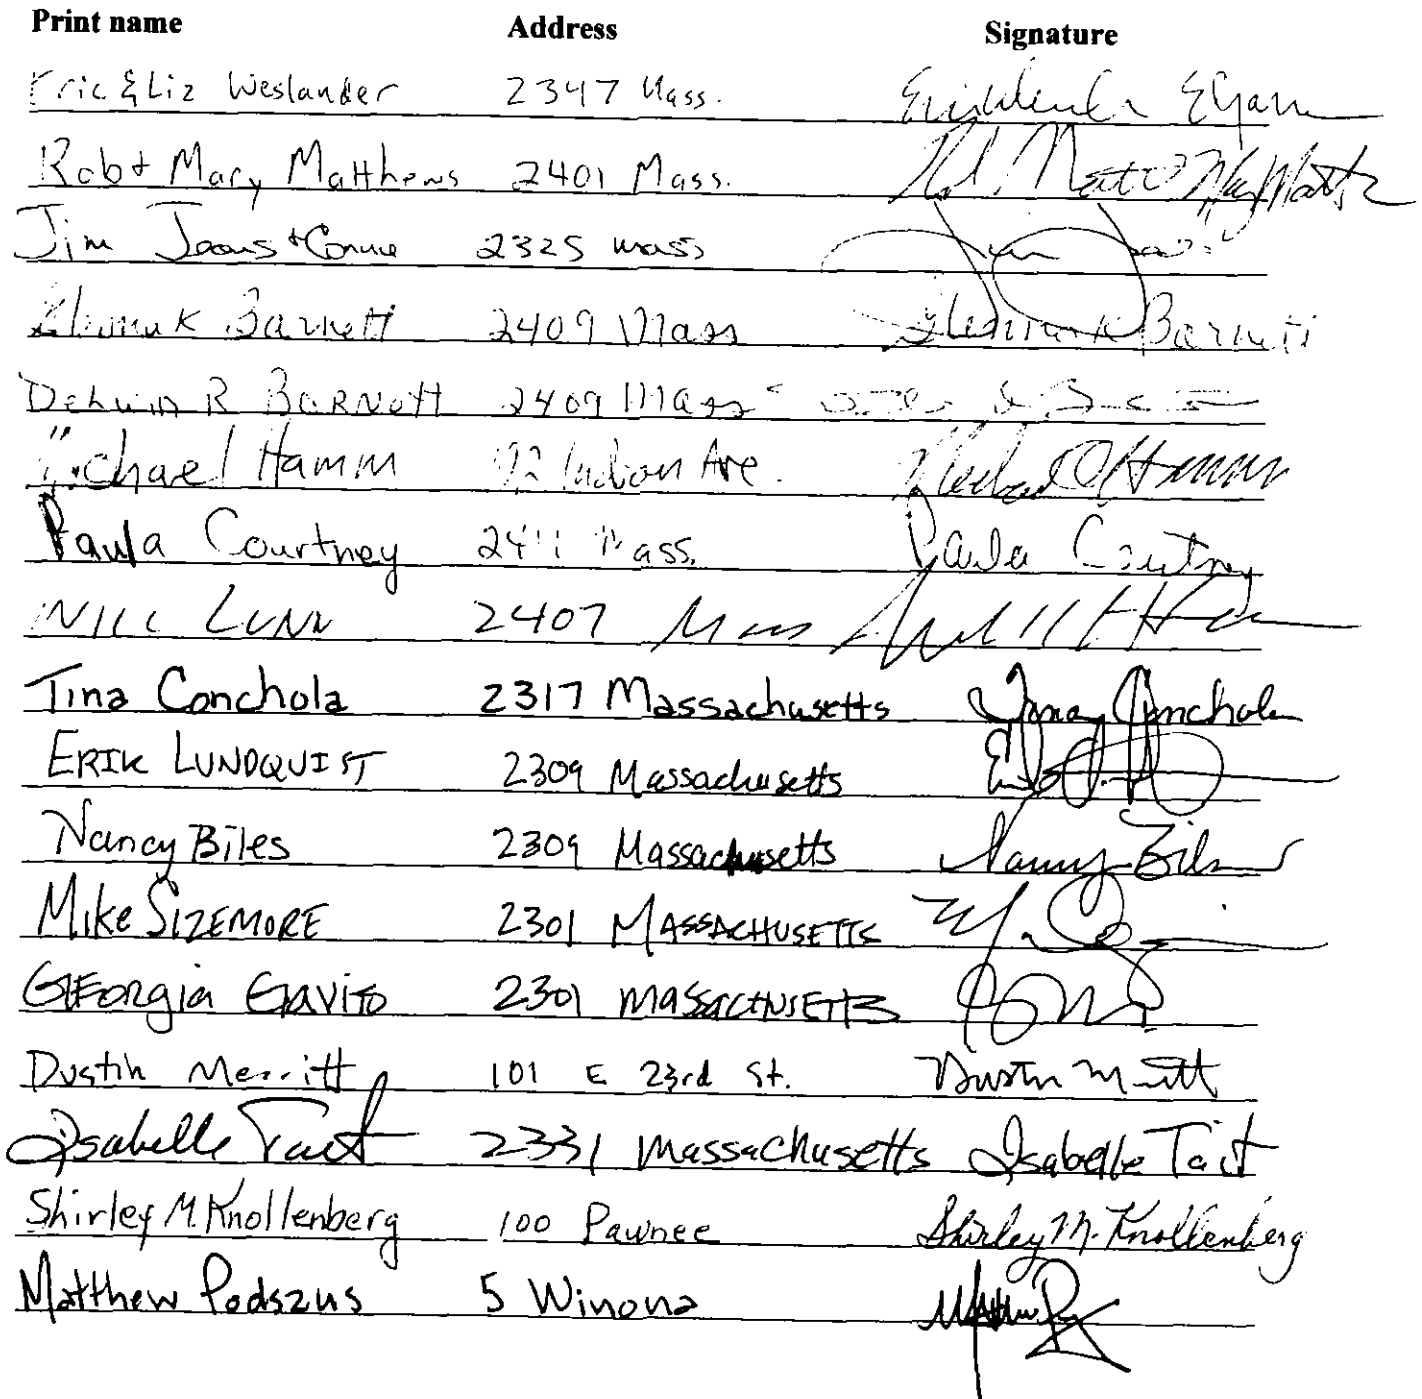 Print name Address Signature
Eric & Liz Weslander 2347 Mass.
Rob + Mary Matthews 2401 Mass.
Jim + Connie 2325 mass
Barnett 2409 Mass Barnett
R Barnett 2409 Mass
Michael Hamm Ave. Michael Hamm
Paula Courtney Mass. Paula Courtney
Lunn 2407 Mass
Tina Conchola 2317 Massachusetts Tina Conchola
ERIK LUNDQUIST 2309 Massachusetts
Nancy Biles 2309 Massachusetts Nancy Biles
Mike SIZEMORE 2301 MASSACHUSETTS
Georgia Gavito 2301 MASSACHUSETTS
Dustin Merritt 101 E 23rd St. Dustin Merritt
Isabelle Tait 2331 Massachusetts Isabelle Tait
Shirley M. Knollenberg 100 Pawnee Shirley M. Knollenberg
Matthew Podszus 5 Winona Matthew